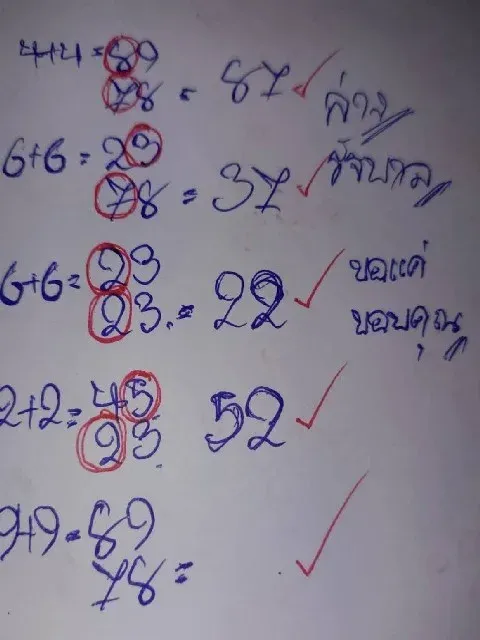 4+4 = 89
78 = 87 ล่าง
6+6 = 23 รัฐบาล
78 = 37
6+6 = 23 ขอแค่
23. = 22 ขอบคุณ
2+2 = 45 52
23.
9+9 = 89
78 =